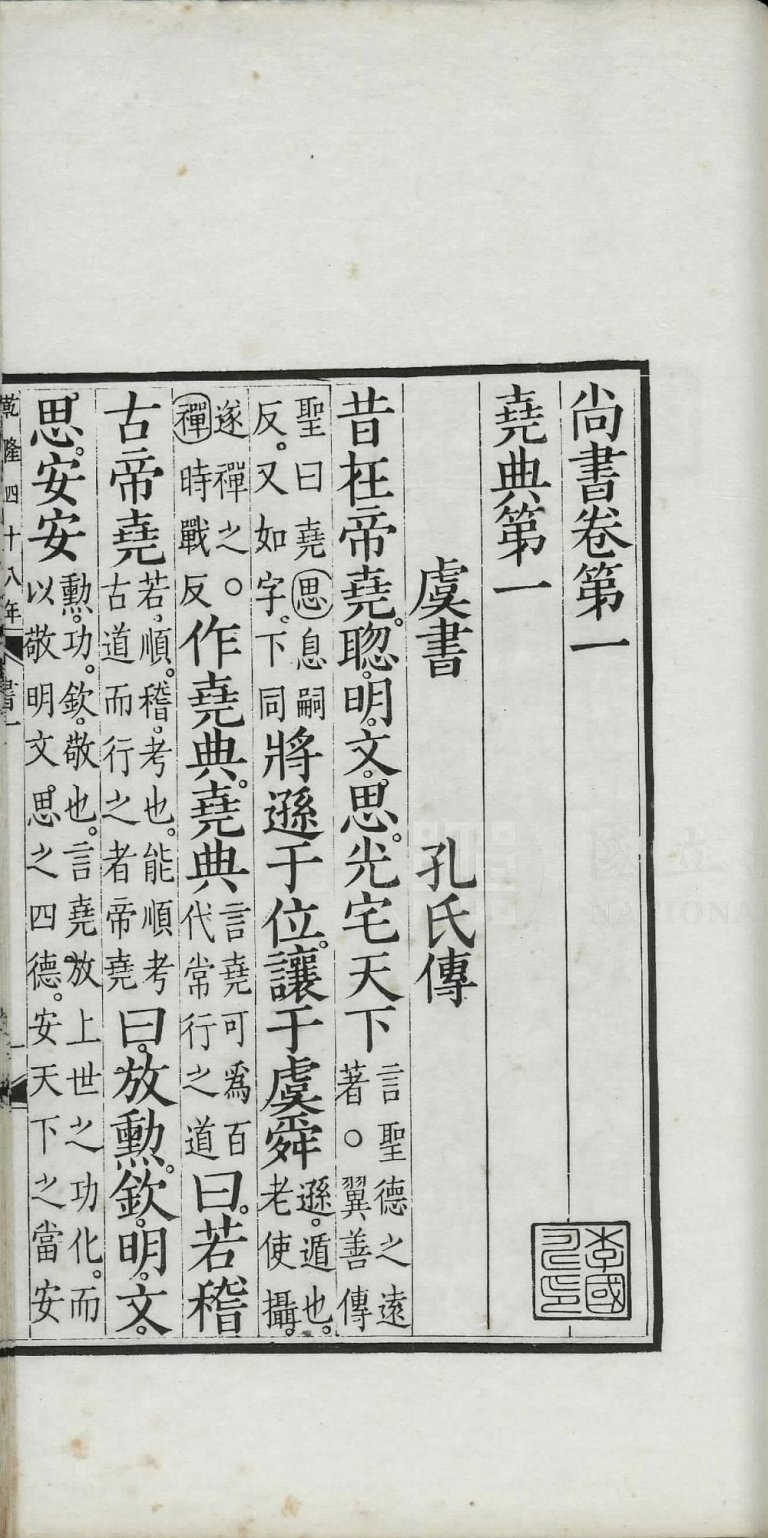 尚書卷第一
堯典第一
虞書　孔氏傳
昔在帝堯。聦。明。文。思。光宅天下言聖德之遠著。○翼善傳
聖曰堯思息嗣反。又如字。下同將遜于位。讓于虞舜遜。遁也。老使攝。
遂禪之。○禪時戰反作堯典。堯典言堯可爲百代常行之道曰。若稽
古帝堯若。順。稽。考也。能順考古道而行之者帝堯曰。放勳。欽。明。文。
思。安安勳。功。欽。敬也。言堯放上世之功化。而以敬明文思之四德。安天下之當安
乾隆四十八年
書一
李國